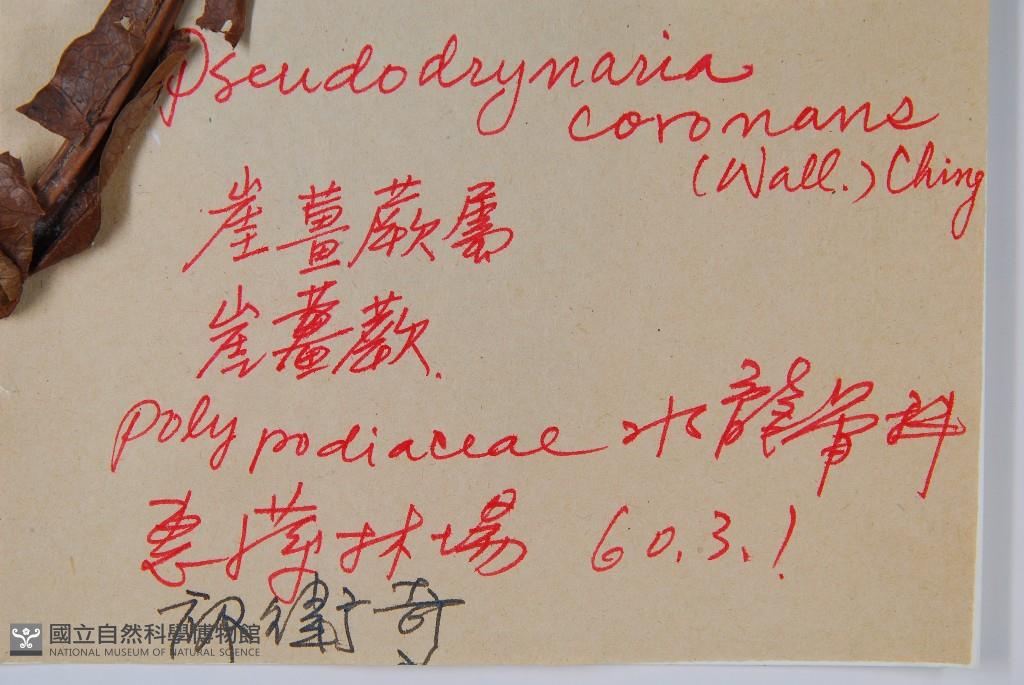 Pseudodrynaria
coronans
(Wall.) Ching
崖薑蕨屬
崖薑蕨.
Polypodiaceae 水龍骨科
惠蓀林場 60.3.1
衛奇
國立自然科學博物館
NATIONAL MUSEUM OF NATURAL SCIENCE